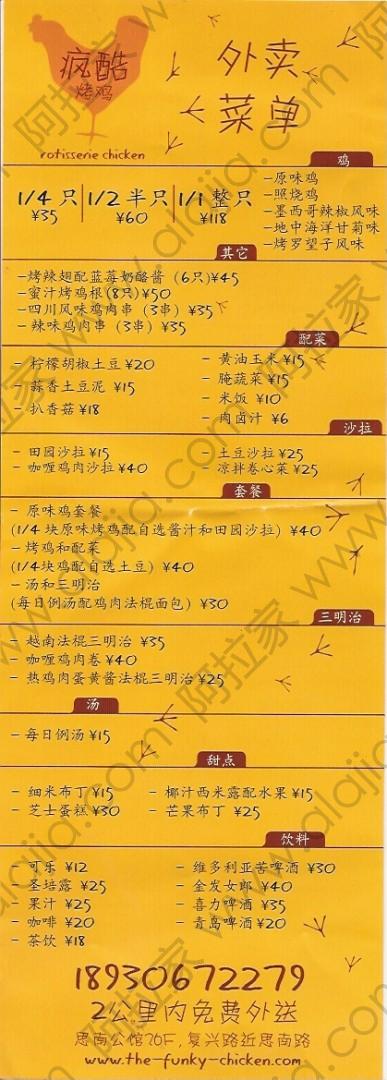 疯酷
烤鸡
rotisserie chicken
外卖
菜单
鸡
1/4 只 1/2 半只 1/1 整只
¥35 ¥60 ¥118
-原味鸡
-照烧鸡
-墨西哥辣椒风味
-地中海洋甘菊味
-烤罗望子风味
其它
-烤辣翅配蓝莓奶酪酱 (6只)¥45
-蜜汁烤鸡根(8只)¥50
-四川风味鸡肉串 (3串) ¥35
- 辣味鸡肉串 (3串) ¥35
配菜
- 柠檬胡椒土豆 ¥20
- 蒜香土豆泥 ¥15
- 扒香菇 ¥18
- 黄油玉米 ¥15
- 腌蔬菜 ¥15
- 米饭 ¥10
- 肉卤汁 ¥6
沙拉
- 田园沙拉 ¥15
- 咖喱鸡肉沙拉 ¥40
- 土豆沙拉 ¥25
凉拌卷心菜 ¥25
套餐
- 原味鸡套餐
(1/4 块原味烤鸡配自选酱汁和田园沙拉) ¥40
- 烤鸡和配菜
(1/4块鸡配自选土豆) ¥40
- 汤和三明治
(每日例汤配鸡肉法棍面包) ¥30
三明治
- 越南法棍三明治 ¥35
- 咖喱鸡肉卷 ¥40
- 热鸡肉蛋黄酱法棍三明治 ¥25
汤
- 每日例汤 ¥15
甜点
- 细米布丁 ¥15
- 芝士蛋糕 ¥30
- 椰汁西米露配水果 ¥15
- 芒果布丁 ¥25
饮料
- 可乐 ¥12
- 圣培露 ¥25
- 果汁 ¥25
- 咖啡 ¥20
- 茶饮 ¥18
- 维多利亚苦啤酒 ¥30
- 金发女郎 ¥40
- 喜力啤酒 ¥35
- 青岛啤酒 ¥20
18930672279
2公里内免费外送
思南公馆26F,复兴路近思南路
www.the-funky-chicken.com
阿拉家 www.alajia.com